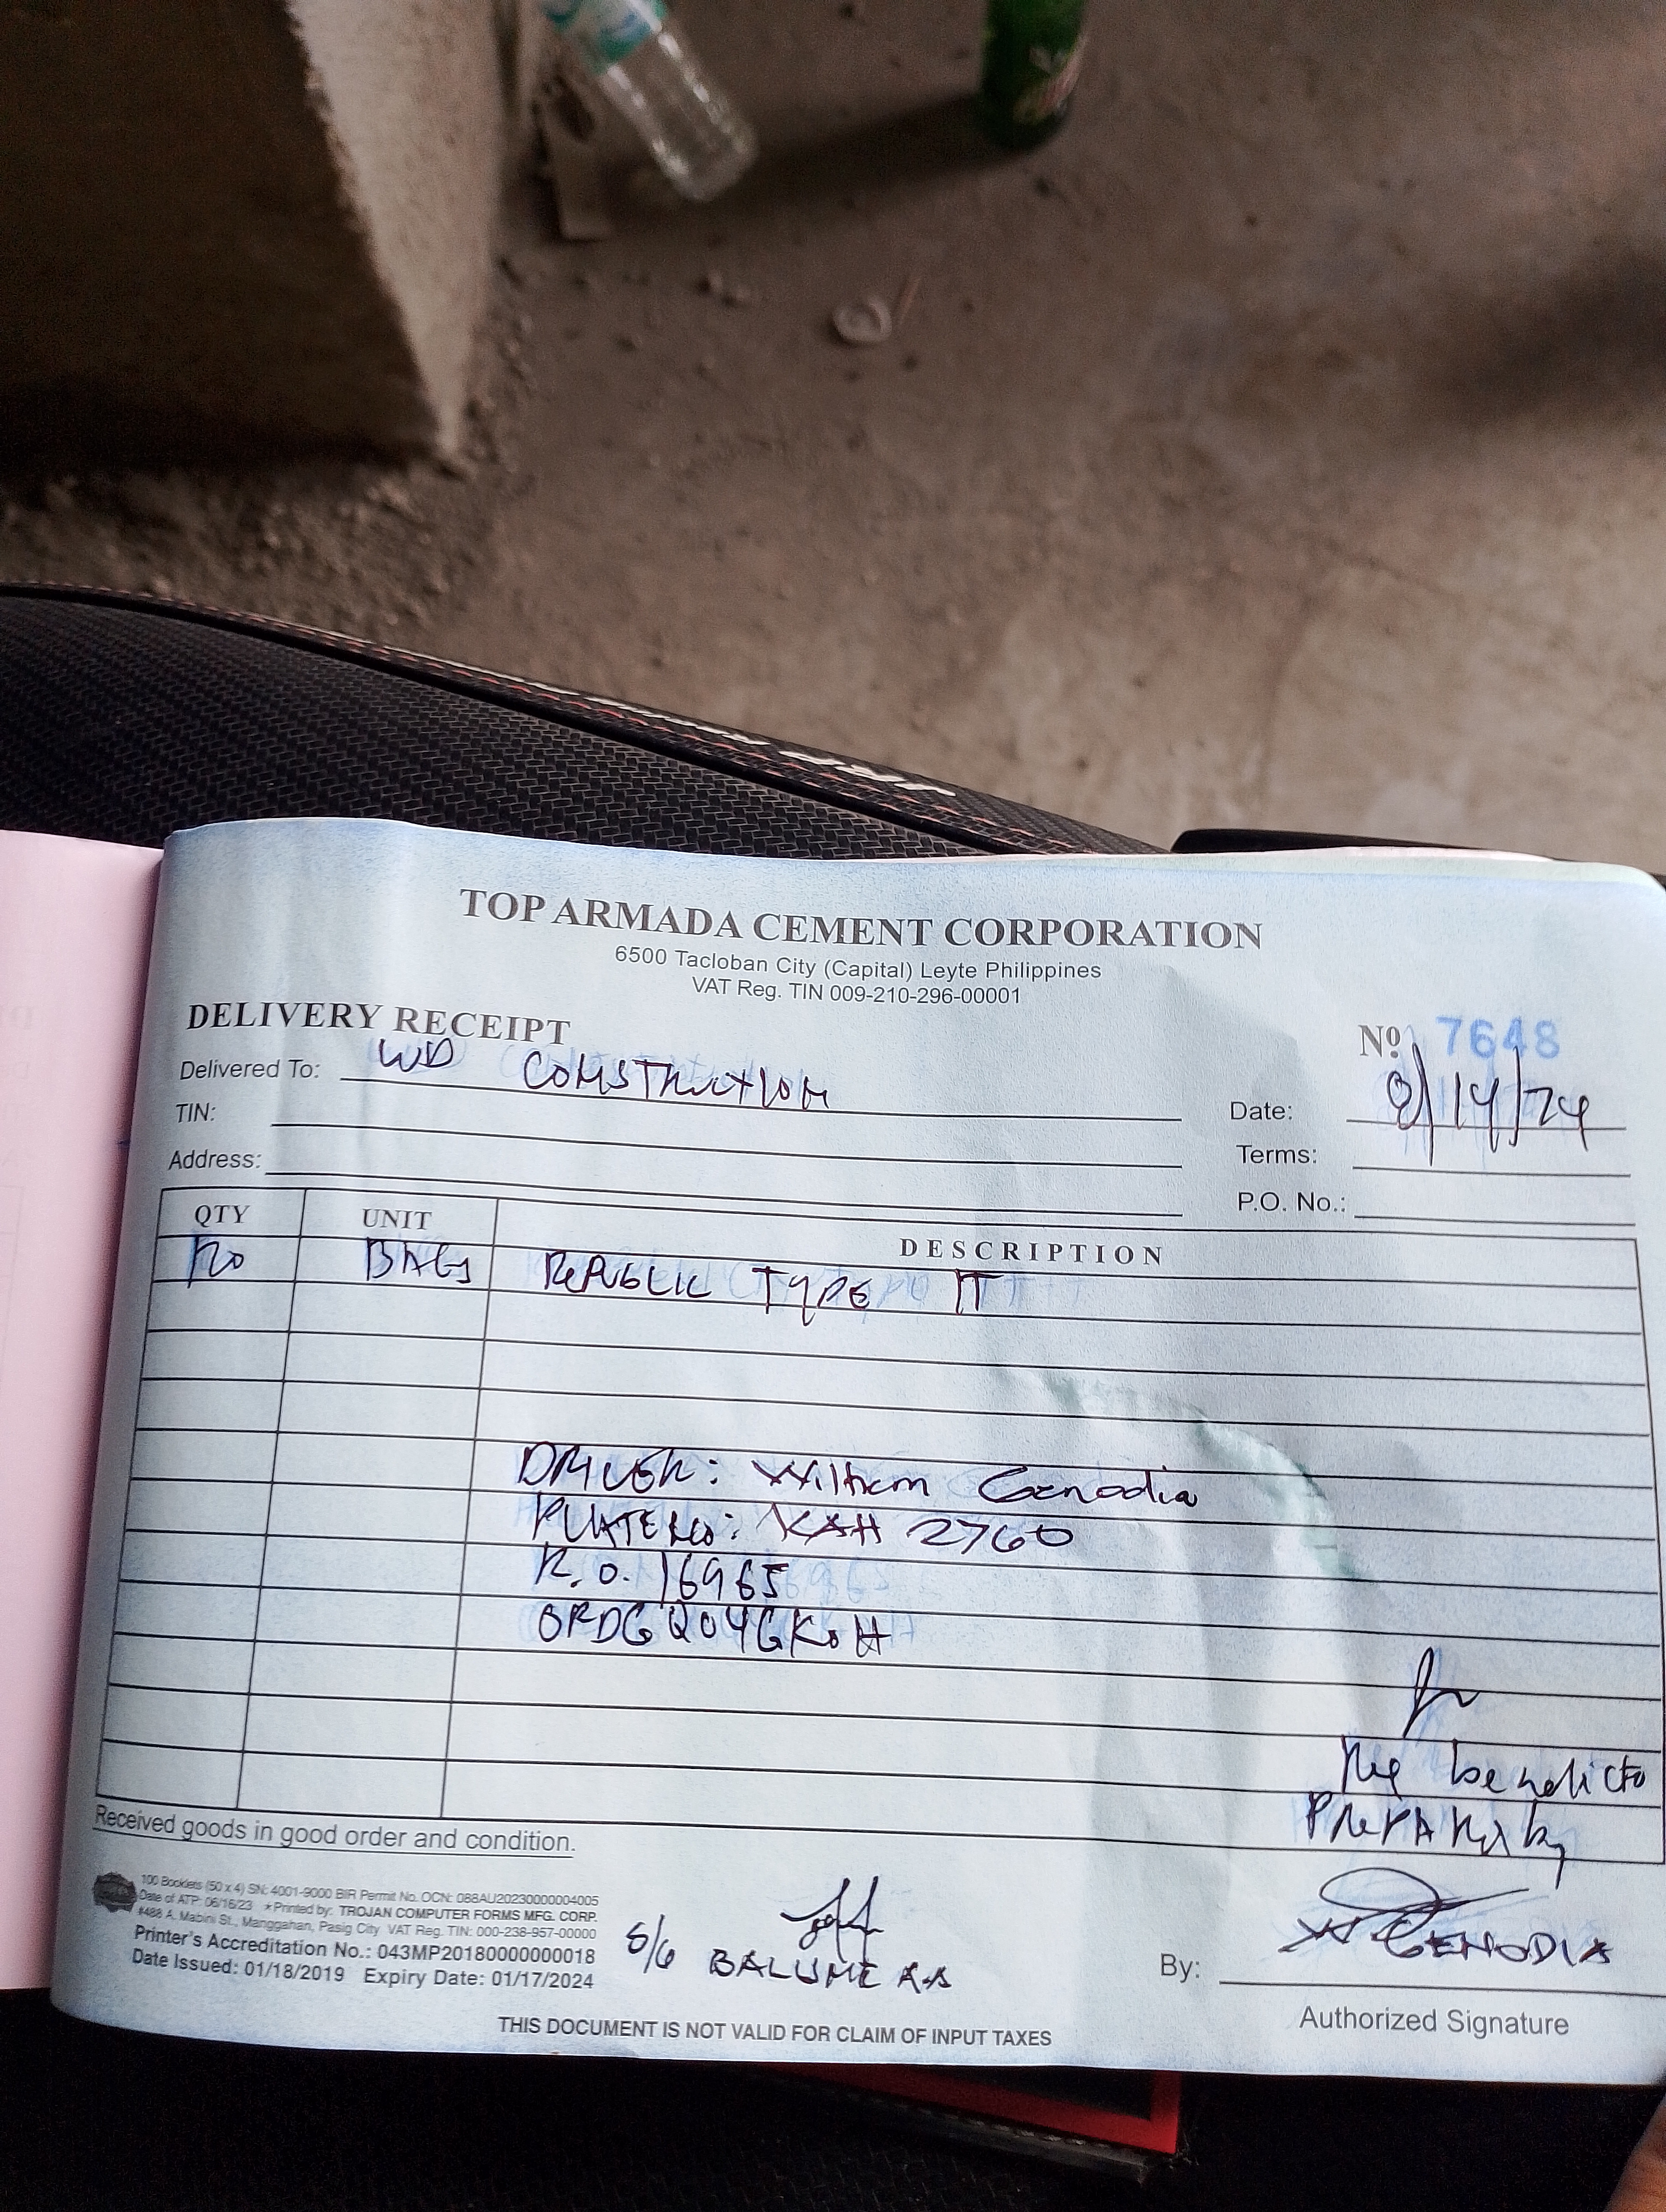 TOP ARMADA CEMENT CORPORATION
6500 Tacloban City (Capital) Leyte Philippines
VAT Reg. TIN 009-210-296-00001
DELIVERY RECEIPT
Nº 7648
Delivered To: WD CONSTRUCTION
Date: 8/14/24
TIN:
Terms:
Address:
P.O. No.:
QTY UNIT DESCRIPTION
BAGS REPUBLIC TYPE IT
DRIVER: William Genodia
PLATE NO: KAH 2760
R.O. 16965
benedicto
PREPARED by
Received goods in good order and condition.
100 Booklets (50 x 4) SN: 4001-9000 BIR Permit No. OCN: 088AU20230000004005
Date of ATP: 06/16/23 ★Printed by: TROJAN COMPUTER FORMS MFG. CORP.
#488 A. Mabini St., Manggahan, Pasig City VAT Reg. TIN: 000-238-957-00000
Printer's Accreditation No.: 043MP20180000000018
Date Issued: 01/18/2019 Expiry Date: 01/17/2024
S/G
By: GENODIA
Authorized Signature
THIS DOCUMENT IS NOT VALID FOR CLAIM OF INPUT TAXES